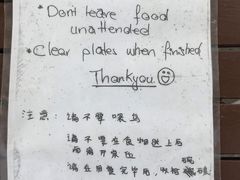 * Don't leave food
unattended
* Clear plates when finished
Thankyou ☺
注意: 请不要喂鸟
请不要在食物上后
离开座位
请在用餐完毕后,收拾碗碟